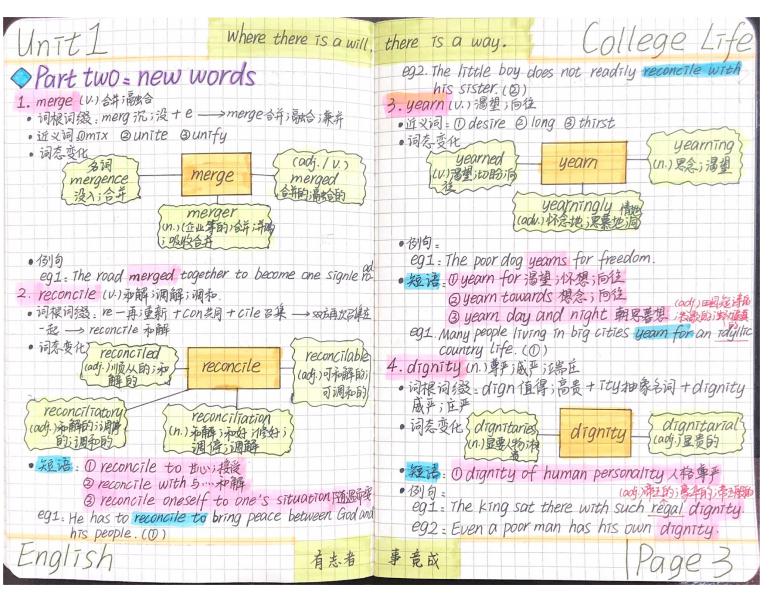 Unit 1
Where there is a will, there is a way.
College Life
Part two: new words
1. merge (v.) 合并;融合
• 词根词缀: merg 沉;没 + e → merge 合并;融合;兼并
• 近义词 ①mix ②unite ③unify
• 词态变化
名词
mergence
没入;合并
merge
(adj./v.)
merged
合并的;融合的
merger
(n.) (企业等的)合并;并购
;吸收合并
• 例句
eg1: The road merged together to become one signle road
2. reconcile (v.) 和解;调解;调和.
• 词根词缀: re一再;重新 + con共同 + cile召集 → 双方再次召集在
一起 → reconcile 和解
• 词态变化
reconciled
(adj.) 顺从的;和
解的
reconcile
reconcilable
(adj.) 可和解的;
可调和的
reconciliatory
(adj.) 和解的;调停
的;调和的
reconciliation
(n.) 和解;和好;修好;
调停;调解
• 短语: ① reconcile to 甘心;接受
② reconcile with 与…和解
③ reconcile oneself to one's situation 随遇而安
eg1: He has to reconcile to bring peace between God and
his people. (①)
English
有志者
eg2. The little boy does not readily reconcile with
his sister. (②)
3. yearn (v.) 渴望;向往
• 近义词: ① desire ② long ③ thirst
• 词态变化
yearned
(v.) 渴望;切盼;向
往
yearn
yearning
(n.) 思念;渴望
yearningly
(adv.) 怀念地;思慕地;
• 例句:
eg1: The poor dog yearns for freedom.
• 短语: ① yearn for 渴望;怀想;向往
② yearn towards 想念;向往
③ yearn day and night 朝思暮想
eg1. Many people living in big cities yearn for an idyllic
country life. (①)
4. dignity (n.) 尊严;威严;端庄
• 词根词缀: dign 值得;高贵 + ity抽象名词 + dignity
威严;庄严
• 词态变化
dignitaries
(n.) 显要人物;权
贵
dignity
dignitarial
(adj.) 显贵的
• 短语: ① dignity of human personality 人格尊严
• 例句:
eg1: The king sat there with such regal dignity.
eg2: Even a poor man has his own dignity.
事竟成
Page 3